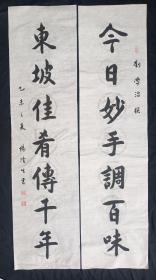 今日妙手調百味
東坡佳肴傳千年
乙未之夏